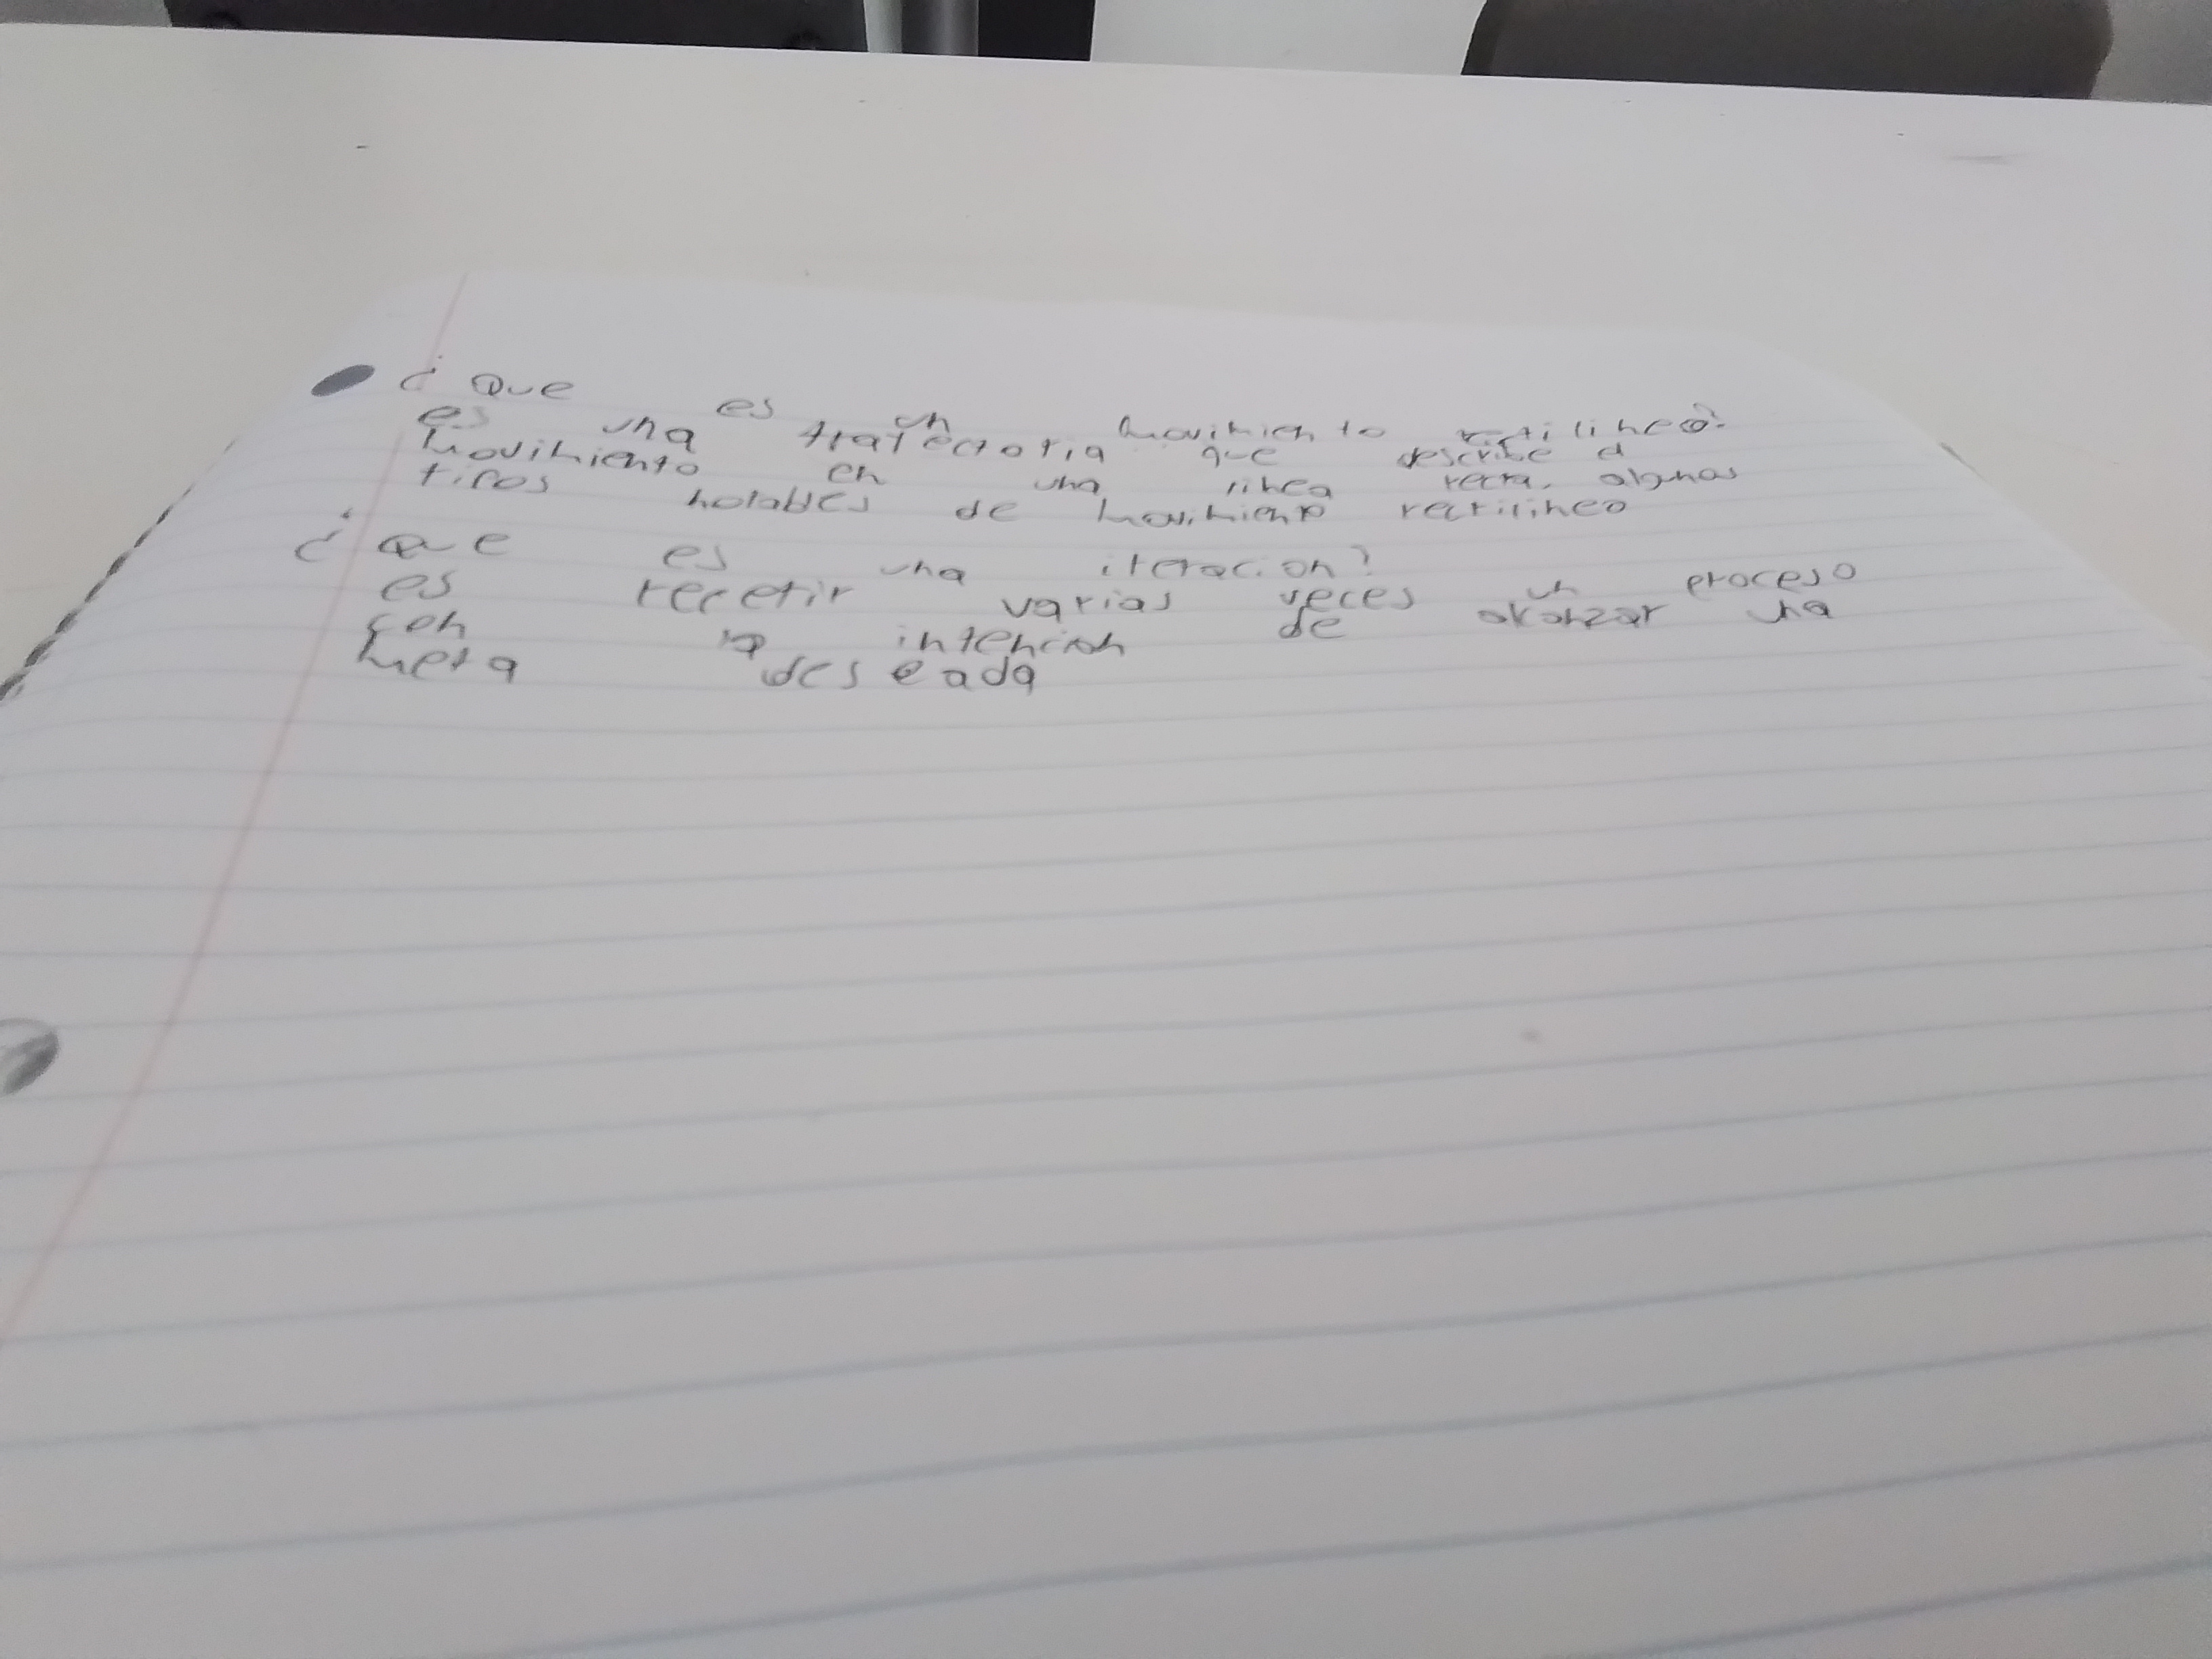 ¿ Que es un movimiento rectilineo?
es una trayectoria que describe el
movimiento en una linea recta. algunas
tipos notables de movimiento rectilineo
¿ Que es una iteracion?
es repetir varias veces un proceso
con la intencion de alcanzar una
meta deseada